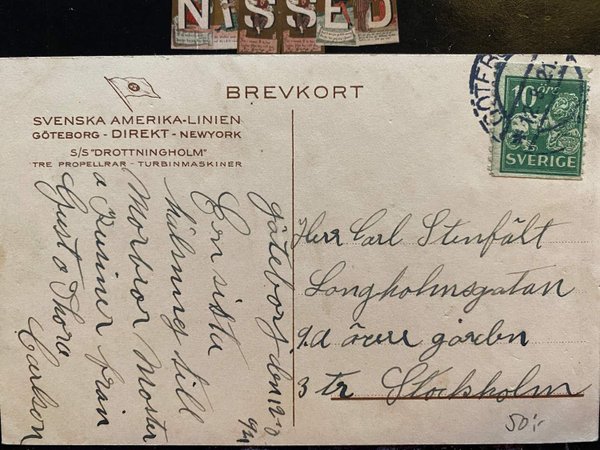 NISSED
BREVKORT
SVENSKA AMERIKA-LINIEN
GÖTEBORG - DIREKT - NEWYORK
S/S "DROTTNINGHOLM"
TRE PROPELLRAR - TURBINMASKINER
GÖTEBO
10 öre
SVERIGE
Göteborg den
En sista
hälsning till
Morbror Moster
o Kusiner från
Gust o Thora
Carlson
Herr Carl Stenfält
Longholmsgatan
9.d övre gården
3 tr Stockholm
50:-